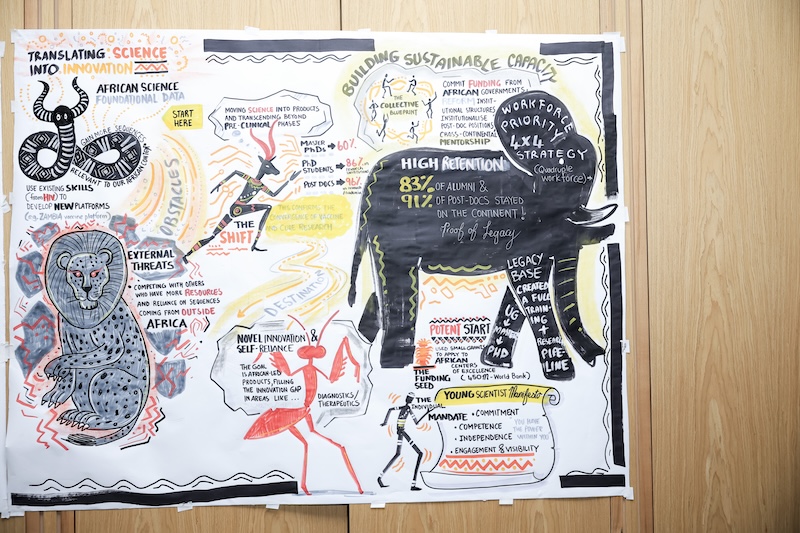 TRANSLATING SCIENCE
INTO INNOVATION
AFRICAN SCIENCE
FOUNDATIONAL DATA
START
HERE
GAIN MORE SEQUENCES
RELEVANT TO OUR AFRICAN CONTEXT
USE EXISTING SKILLS
(from HIV) TO
DEVELOP NEW PLATFORMS
(e.g. ZAMBIA vaccine platform)
OBSTACLES
EXTERNAL
THREATS
• COMPETING WITH OTHERS
WHO HAVE MORE RESOURCES
AND RELIANCE ON SEQUENCES
COMING FROM OUTSIDE
AFRICA
MOVING SCIENCE INTO PRODUCTS
AND TRANSCENDING BEYOND
PRE-CLINICAL PHASES
THE
SHIFT
MASTER
PHDs → 60%
PhD
STUDENTS → 86%
POST DOCS → 96%
CONVERGENCE OF VACCINE
AND CURE RESEARCH
DESTINATION
NOVEL INNOVATION &
SELF-RELIANCE
THE GOAL
IS AFRICAN-LED
PRODUCTS, FILLING
THE INNOVATION GAP
IN AREAS LIKE...
DIAGNOSTICS/
THERAPEUTICS
BUILDING SUSTAINABLE CAPACITY
THE
COLLECTIVE
BLUEPRINT
COMMIT FUNDING FROM
AFRICAN GOVERNMENTS
REFORM INSTIT-
UTIONAL STRUCTURES
INSTITUTIONALISE
POST-DOC POSITIONS
CROSS-CONTINENTAL
MENTORSHIP
WORKFORCE
PRIORITY
4x4
STRATEGY
(Quadruple
workforce)
HIGH RETENTION
83% OF ALUMNI &
91% OF POST-DOCS STAYED
ON THE CONTINENT!
Proof of Legacy
LEGACY
BASE
UG
MASTERS
PHD
CREATED
A FULL
TRAIN-
ING
+
RESEARCH
PIPE-
LINE
POTENT START
USED SMALL GRANTS
TO APPLY TO
AFRICAN
CENTERS
OF EXCELLENCE
THE
FUNDING
SEED
YOUNG SCIENTIST Manifesto
THE
INDIVIDUAL
MANDATE
• COMMITMENT
• COMPETENCE
• INDEPENDENCE
• ENGAGEMENT & VISIBILITY
YOU HAVE
THE POWER
WITHIN YOU